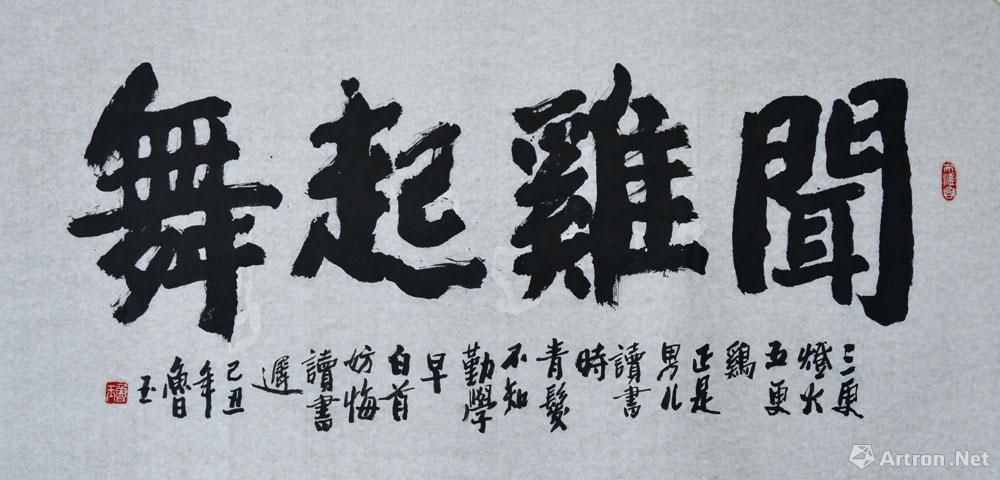 聞雞起舞
三更
燈火
五更
鷄
正是
男儿
讀書
時
青髮
不知
勤學
早
白首
妨悔
讀書
遲
己丑
年
魯
玉
Artron.Net